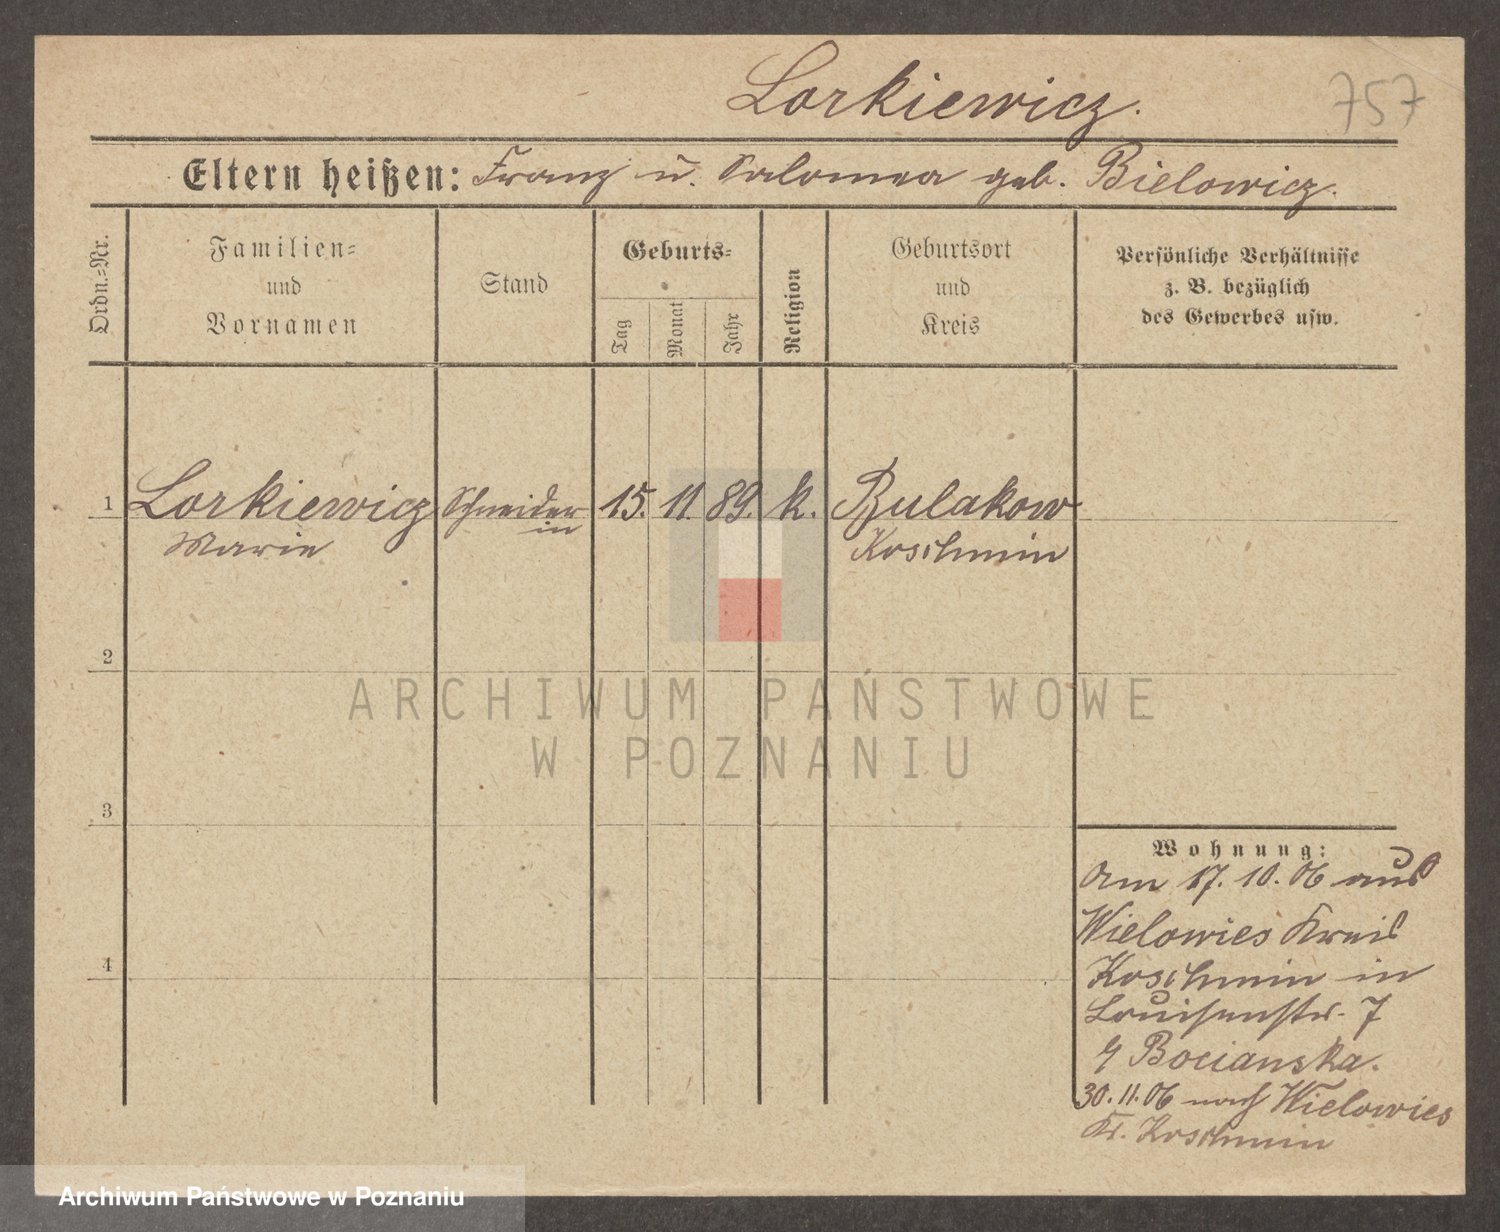 Lorkiewicz.
757
Eltern heißen: Franz u. Salomea geb. Bielowicz.
Ordn.-Nr.
Familien-
und
Vornamen
Stand
Geburts-
Tag
Monat
Jahr
Religion
Geburtsort
und
Kreis
Persönliche Verhältnisse
z. B. bezüglich
des Gewerbes usw.
1 Lorkiewicz Schneider 15. 11. 89. k. Bulakow
Marie in Koschmin
2
ARCHIWUM PAŃSTWOWE
W POZNANIU
3
Wohnung:
Am 17. 10. 06 aus
Wielowies Kreis
4
Koschmin in
Louisenstr. 7
Bocianska.
30. 11. 06 nach Wielowies
Kr. Koschmin
Archiwum Państwowe w Poznaniu